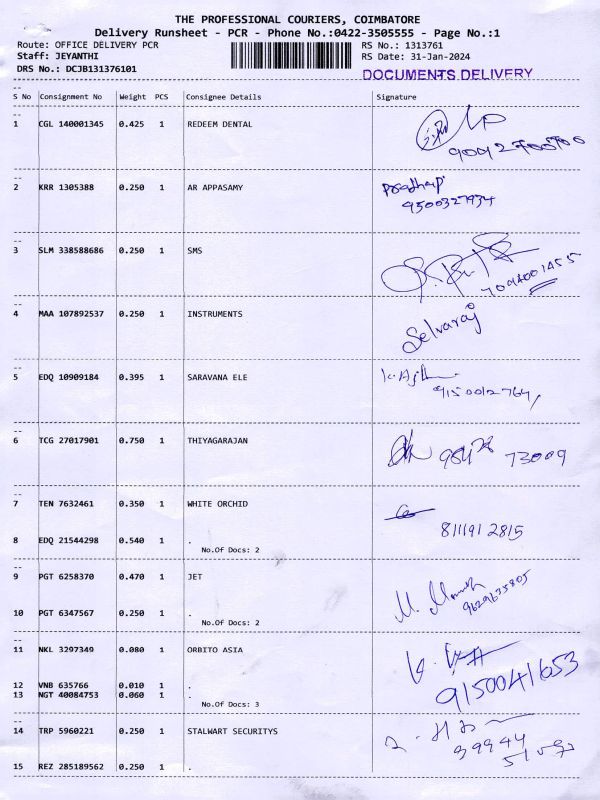 THE PROFESSIONAL COURIERS, COIMBATORE
Delivery Runsheet - PCR - Phone No.:0422-3505555 - Page No.:1
Route: OFFICE DELIVERY PCR RS No.: 1313761
Staff: JEYANTHI RS Date: 31-Jan-2024
DRS No.: DCJB131376101
DOCUMENTS DELIVERY
S No Consignment No Weight PCS Consignee Details Signature
1 CGL 140001345 0.425 1 REDEEM DENTAL
2 KRR 1305388 0.250 1 AR APPASAMY
9500327934
3 SLM 338588686 0.250 1 SMS
4 MAA 107892537 0.250 1 INSTRUMENTS
Selvaraj
5 EDQ 10909184 0.395 1 SARAVANA ELE
9150012764,
6 TCG 27017901 0.750 1 THIYAGARAJAN
73009
7 TEN 7632461 0.350 1 WHITE ORCHID
8111912815
8 EDQ 21544298 0.540 1 .
No.Of Docs: 2
9 PGT 6258370 0.470 1 JET
9629635805
10 PGT 6347567 0.250 1 .
No.Of Docs: 2
11 NKL 3297349 0.080 1 ORBITO ASIA
9150041653
12 VNB 635766 0.010 1 .
13 NGT 40084753 0.060 1 .
No.Of Docs: 3
14 TRP 5960221 0.250 1 STALWART SECURITYS
39944
15 REZ 285189562 0.250 1 .